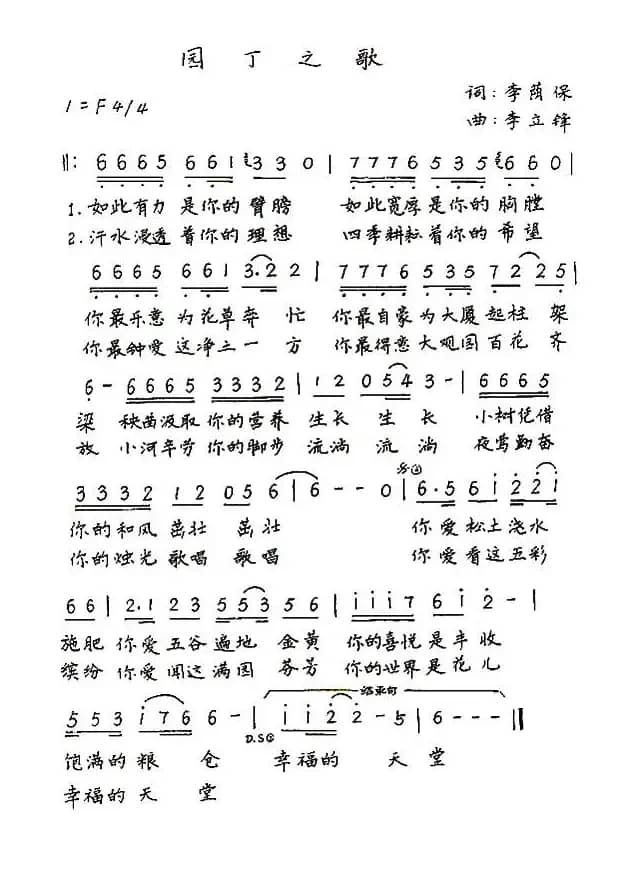 园丁之歌
1=F4/4
词:李荫保
曲:李立锋
‖: 6665 661 330 | 7776 535 660 |
1.如此有力 是你的臂膀 如此宽厚是你的胸膛
2.汗水浸透着你的理想 四季耕耘着你的希望
6665 661 3·22 | 7776 535 7225 |
你最乐意为花草奔忙 你最自豪为大厦起柱架
你最钟爱这净土一方 你最得意大观园百花齐
6- 6665 3332 | 12 054 3- | 6665
梁 秧苗汲取你的营养 生长 生长 小树凭借
放 小河辛劳你的脚步 流淌 流淌 夜莺勤奋
3332 12 056 | 6--0 | 6·561 221
你的和风茁壮 茁壮 你爱松土浇水
你的烛光歌唱 歌唱 你爱看这五彩
66 | 2·1 23 553 56 | 1117 61 2- |
施肥 你爱五谷遍地 金黄 你的喜悦是丰收
缤纷 你爱闻这满园 芬芳 你的世界是花儿
结束句
553 176 6- | 1122-5 | 6--- ‖
D.S
饱满的粮仓 幸福的天堂
幸福的天堂